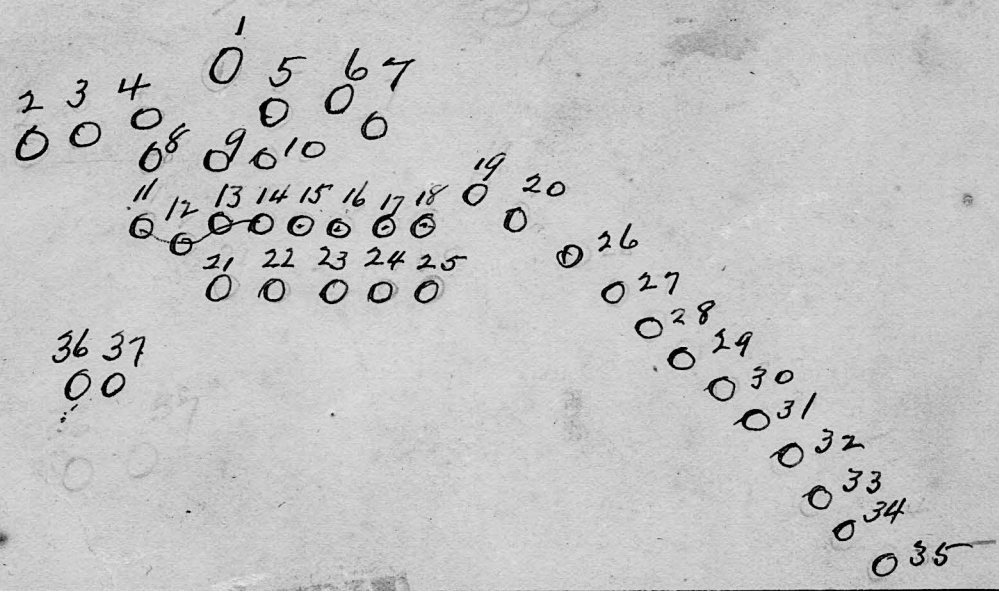 1
5 6 7
2 3 4
8 9 10
11 12 13 14 15 16 17 18 19 20
21 22 23 24 25 26
27
28
29
30
31
32
33
34
35
36 37
37